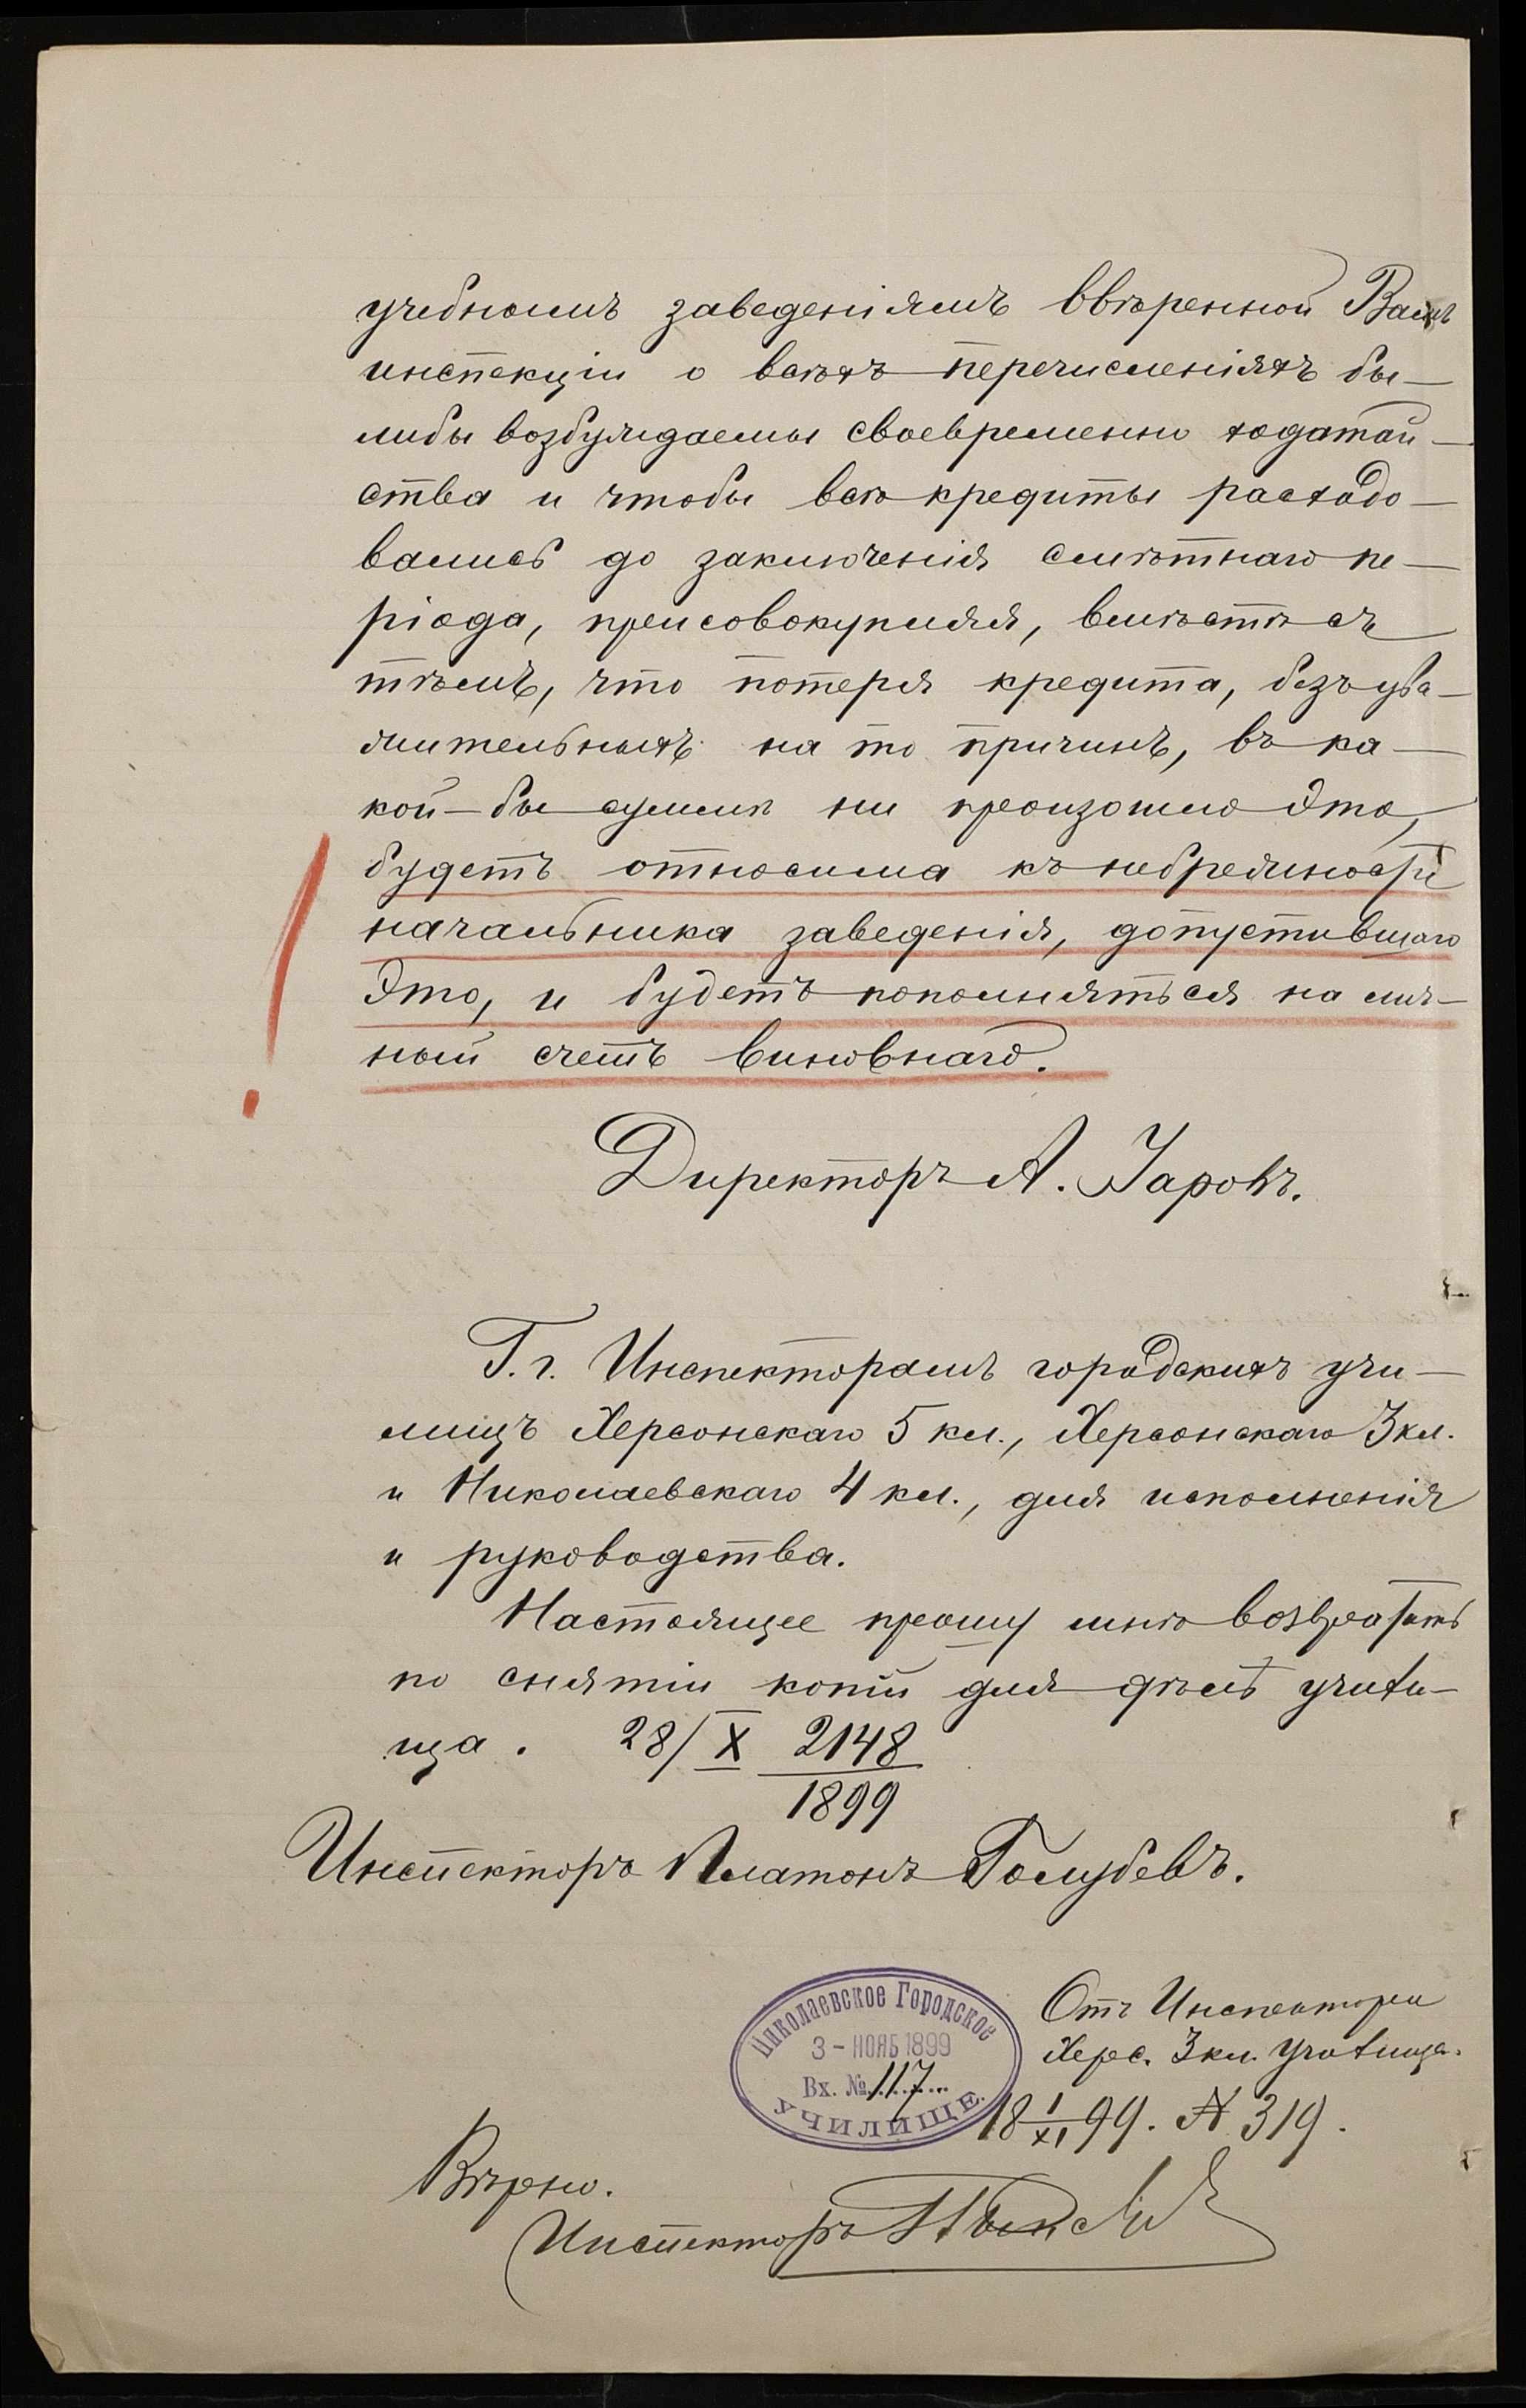 учебномъ заведеніямъ ввѣренной Вамъ
инспекціи о всѣхъ перечисленіяхъ бы—
либы возбуждаемы своевременно ходатай—
ства и чтобы всѣ кредиты расходо—
вались до заключенія смѣтнаго пе—
ріода, присовокупляя, вмѣстѣ съ
тѣмъ, что потеря кредита, безъ ува—
жительныхъ на то причинъ, въ ка—
кой—бы суммѣ ни произошло это,
будетъ относима къ небрежности
начальника заведенія, допустившаго
это, и будетъ пополняться на лич—
ный счетъ виновнаго.
Директоръ А.
Г. г. Инспекторамъ городскихъ учи—
лищъ Херсонскаго 5 кл., Херсонскаго 3 кл.
и Николаевскаго 4 кл., для исполненія
и руководства.
Настоящее прошу мнѣ возвратить
по снятіи копіи для дѣлъ учили—
ща. 28/X 2148
1899
Инспекторъ Платонъ Голубевъ.
Николаевское Городское
3 - НОЯБ 1899
Вх. № 117
УЧИЛИЩЕ.
Отъ Инспектора
Херс. 3 кл. Училища.
18 1/XI 99. № 319.
Вѣрно.
Инспекторъ